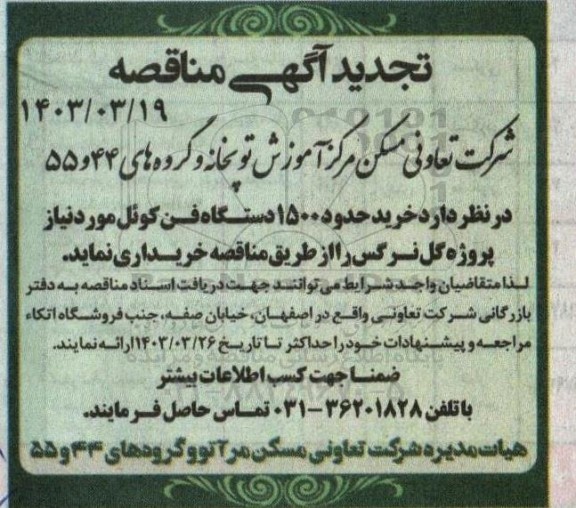 تجدید آگهی مناقصه
۱۴۰۳/۰۳/۱۹
شرکت تعاونی مسکن مرکز آموزش توپخانه و گروه های ۴۴ و ۵۵
در نظر دارد خرید حدود ۱۵۰۰ دستگاه فن کوئل مورد نیاز
پروژه گل نرگس را از طریق مناقصه خریداری نماید.
لذا متقاضیان واجد شرایط می توانند جهت دریافت اسناد مناقصه به دفتر
بازرگانی شرکت تعاونی واقع در اصفهان، خیابان صفه، جنب فروشگاه اتکاء
مراجعه و پیشنهادات خود را حداکثر تا تاریخ ۱۴۰۳/۰۳/۲۶ ارائه نمایند.
ضمنا جهت کسب اطلاعات بیشتر
با تلفن ۳۶۲۰۱۸۲۸-۰۳۱ تماس حاصل فرمایند.
هیات مدیره شرکت تعاونی مسکن مرآتو و گروه های ۴۴ و ۵۵